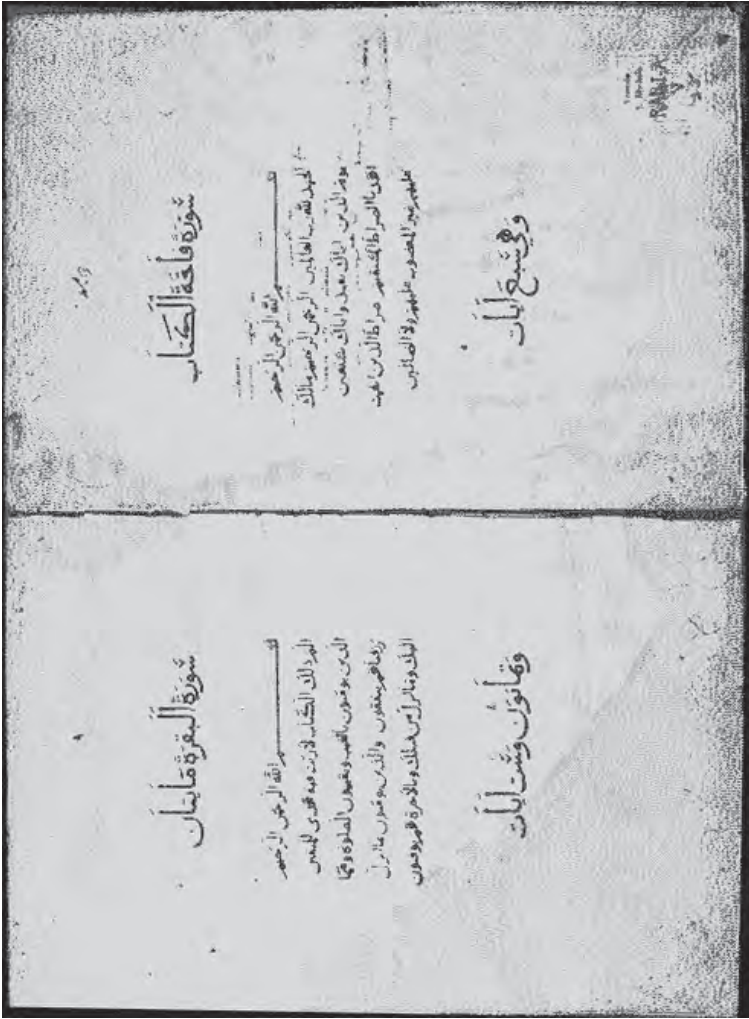 سُورَةُ فَاتِحَةُ الْكِتَابِ
بسم الله الرحمن الرحيم
الحمد لله رب العالمين الرحمن الرحيم مالك
يوم الدين اياك نعبد واياك نستعين
اهدنا الصراط المستقيم صراط الذين انعمت
عليهم غير المغضوب عليهم ولا الضالين
وَهِيَ سَبْعَ ايَات
سُورَةُ الْبَقَرَةِ مَايتَان
بسم الله الرحمن الرحيم
الم ذلك الكتاب لا ريب فيه هدى للمتقين
الذين يومنون بالغيب ويقيمون الصلوة ومما
رزقناهم ينفقون والذين يومنون بما انزل
اليك وما انزل من قبلك وبالاخرة هم يوقنون
وَثمَانُونَ وَسَتْ ايَات